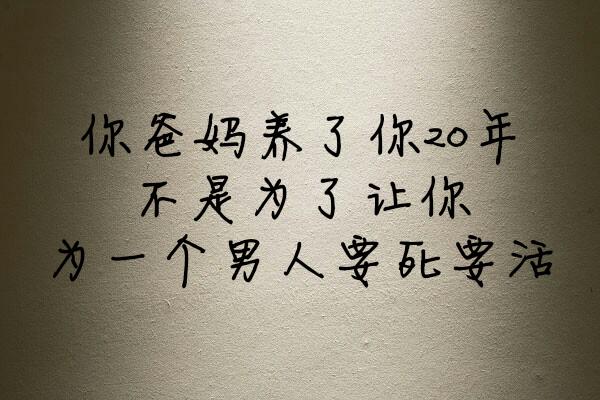 你爸妈养了你20年
不是为了让你
为一个男人要死要活